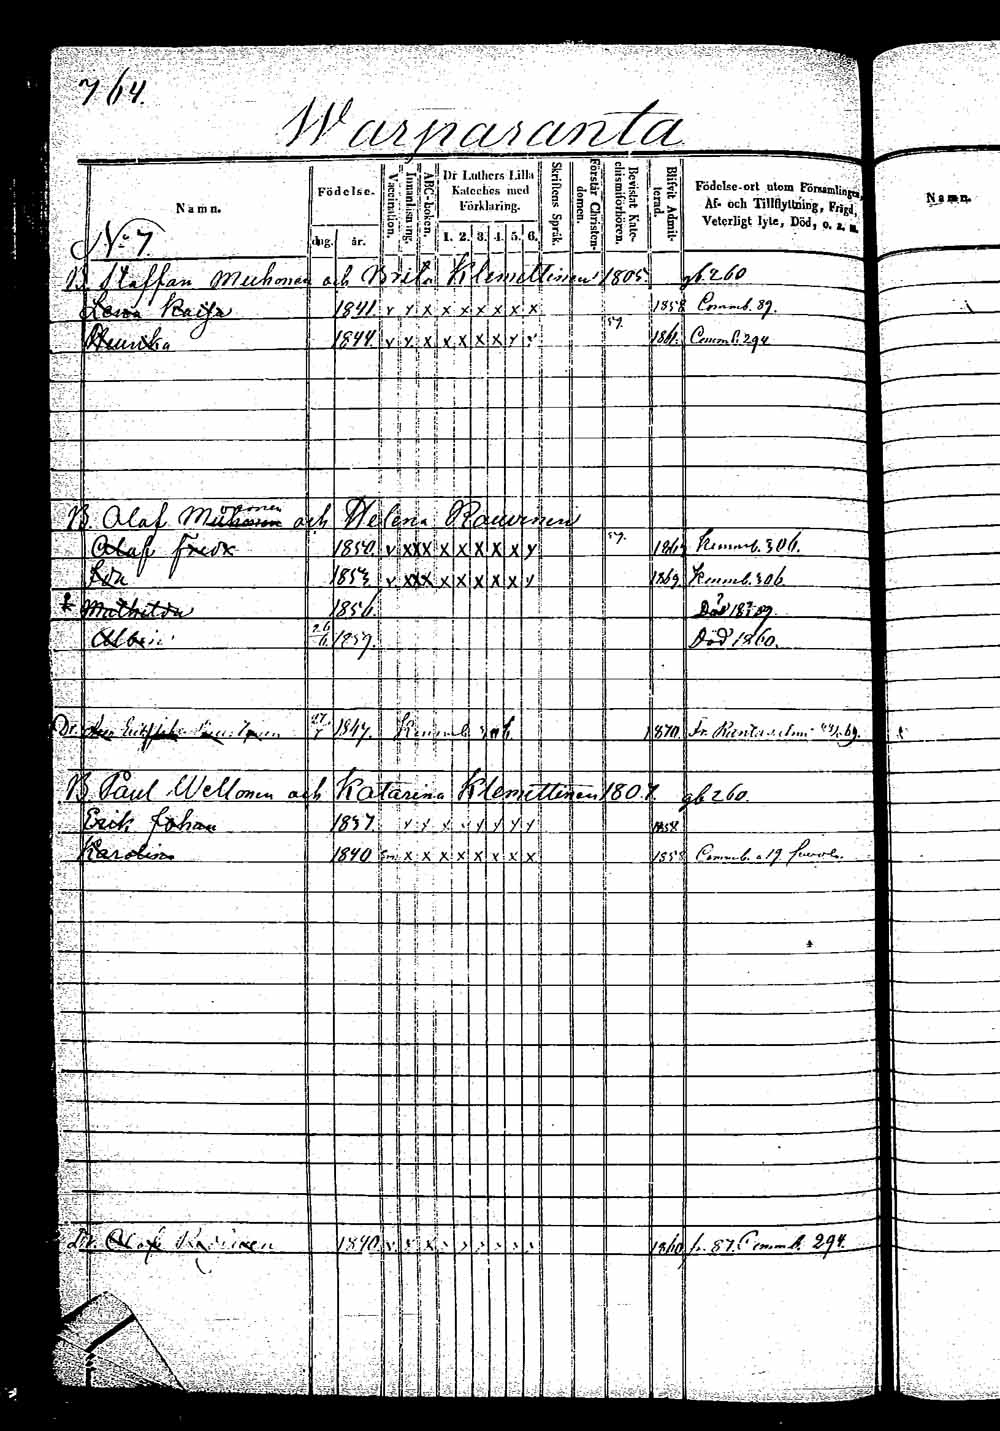 764.
Warparanta
Namn.
Födelse-
dag. år.
Vaccination.
Innanläsning.
ABC-boken.
Dr Luthers Lilla Kateches med Förklaring.
1. 2. 3. 4. 5. 6.
Skriftens Språk.
Förstår Christendomen.
Bevistat Katechismiförhören.
Blifvit Admitterad.
Födelse-ort utom Församlingen, Af- och Tillflyttning, Frägd, Veterligt lyte, Död, o. s. v.
Namn.
No 7.
B. Staffan Muhonen och Brita Klemettinen 1805. gb 260
Lena Kaisa 1841. v v x x x x x x x x 1858 Commb. 89.
57.
1844. v v x x x x x x v v 1861. Commb. 294
B. Olaf Muhonen och Helena
Olaf Fredr 1850. v x x x x x x x x v 57. Kommb. 306.
Eva 1853 v x x x x x x x x v 1869 Kommb. 306
Mathilda 1856. Död
Albin 26/6. 1857. Död 1860.
Dr. 1847. Kommb. 306 1870
B. Paul Wellonen och Katarina Klemettinen 1807. gb 260.
Erik Johan 1837. v v v v v v v v 1858
Karolina 1840 x x x x x x x x 1858 Commb. a 19
Dr. Olof 1840 v v x v v v v v v 1860 fr. 87. Commb. 294.